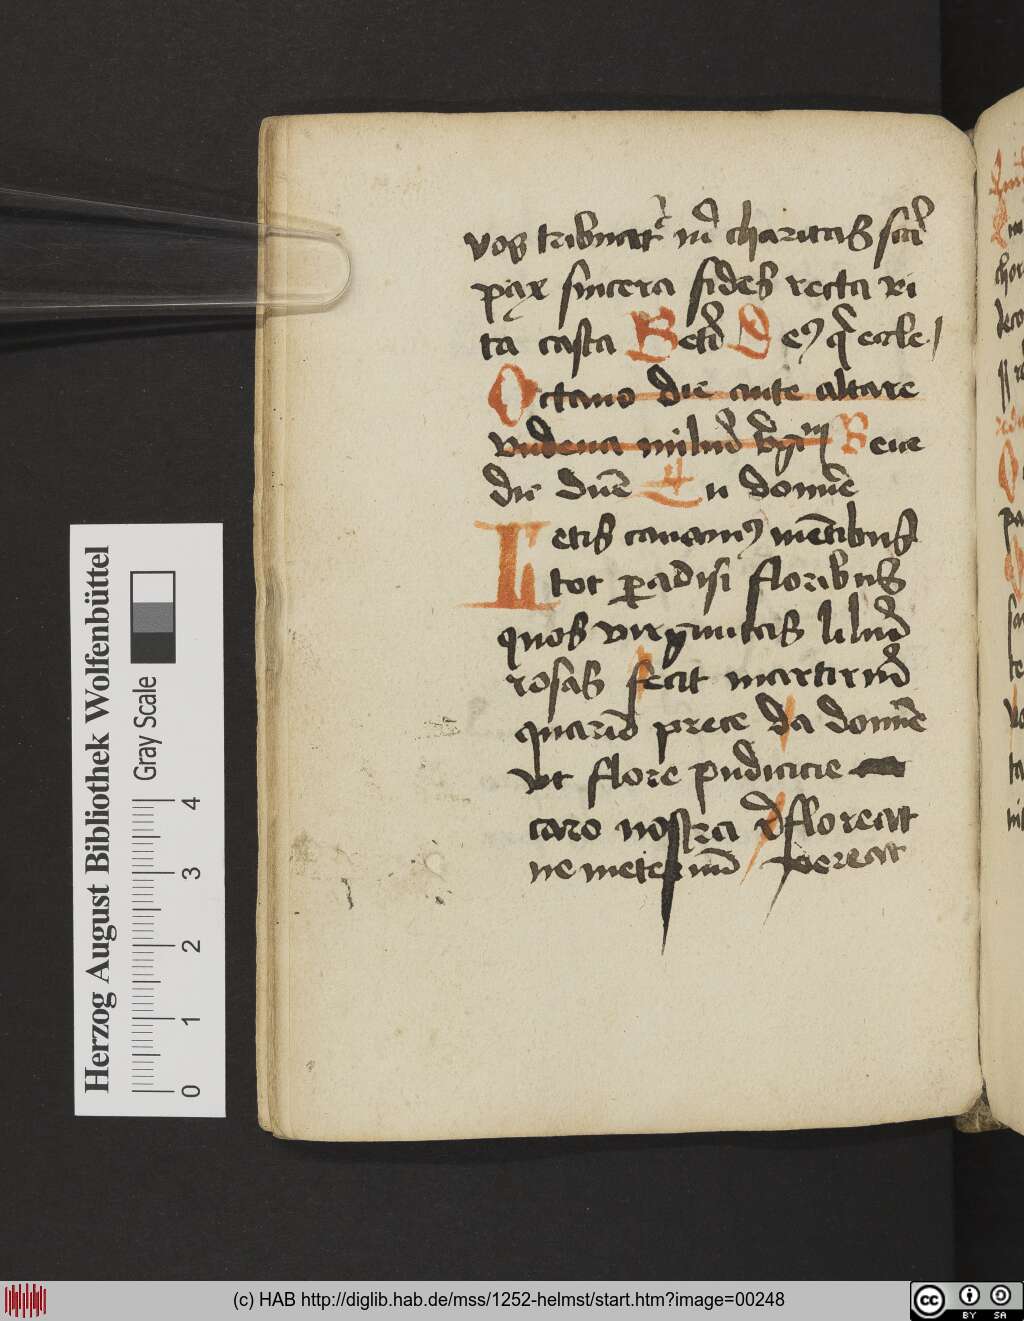 vos tribuatr in charitas scā
pax sincera fides recta vi
ta casta Bet Deus q eccle
Octavo die ante altare
undena miliū vgm Bene
dic dne Tu domine
Letis canamus mētibus
tot paradisi floribus
quos virginitas liliū
rosas fecit martirum
quarū prece da domine
vt flore pudicicie
caro nostra refloreat
ne meternū pereat
Herzog August Bibliothek Wolfenbüttel
Gray Scale
0 1 2 3 4
(c) HAB http://diglib.hab.de/mss/1252-helmst/start.htm?image=00248
cc BY SA